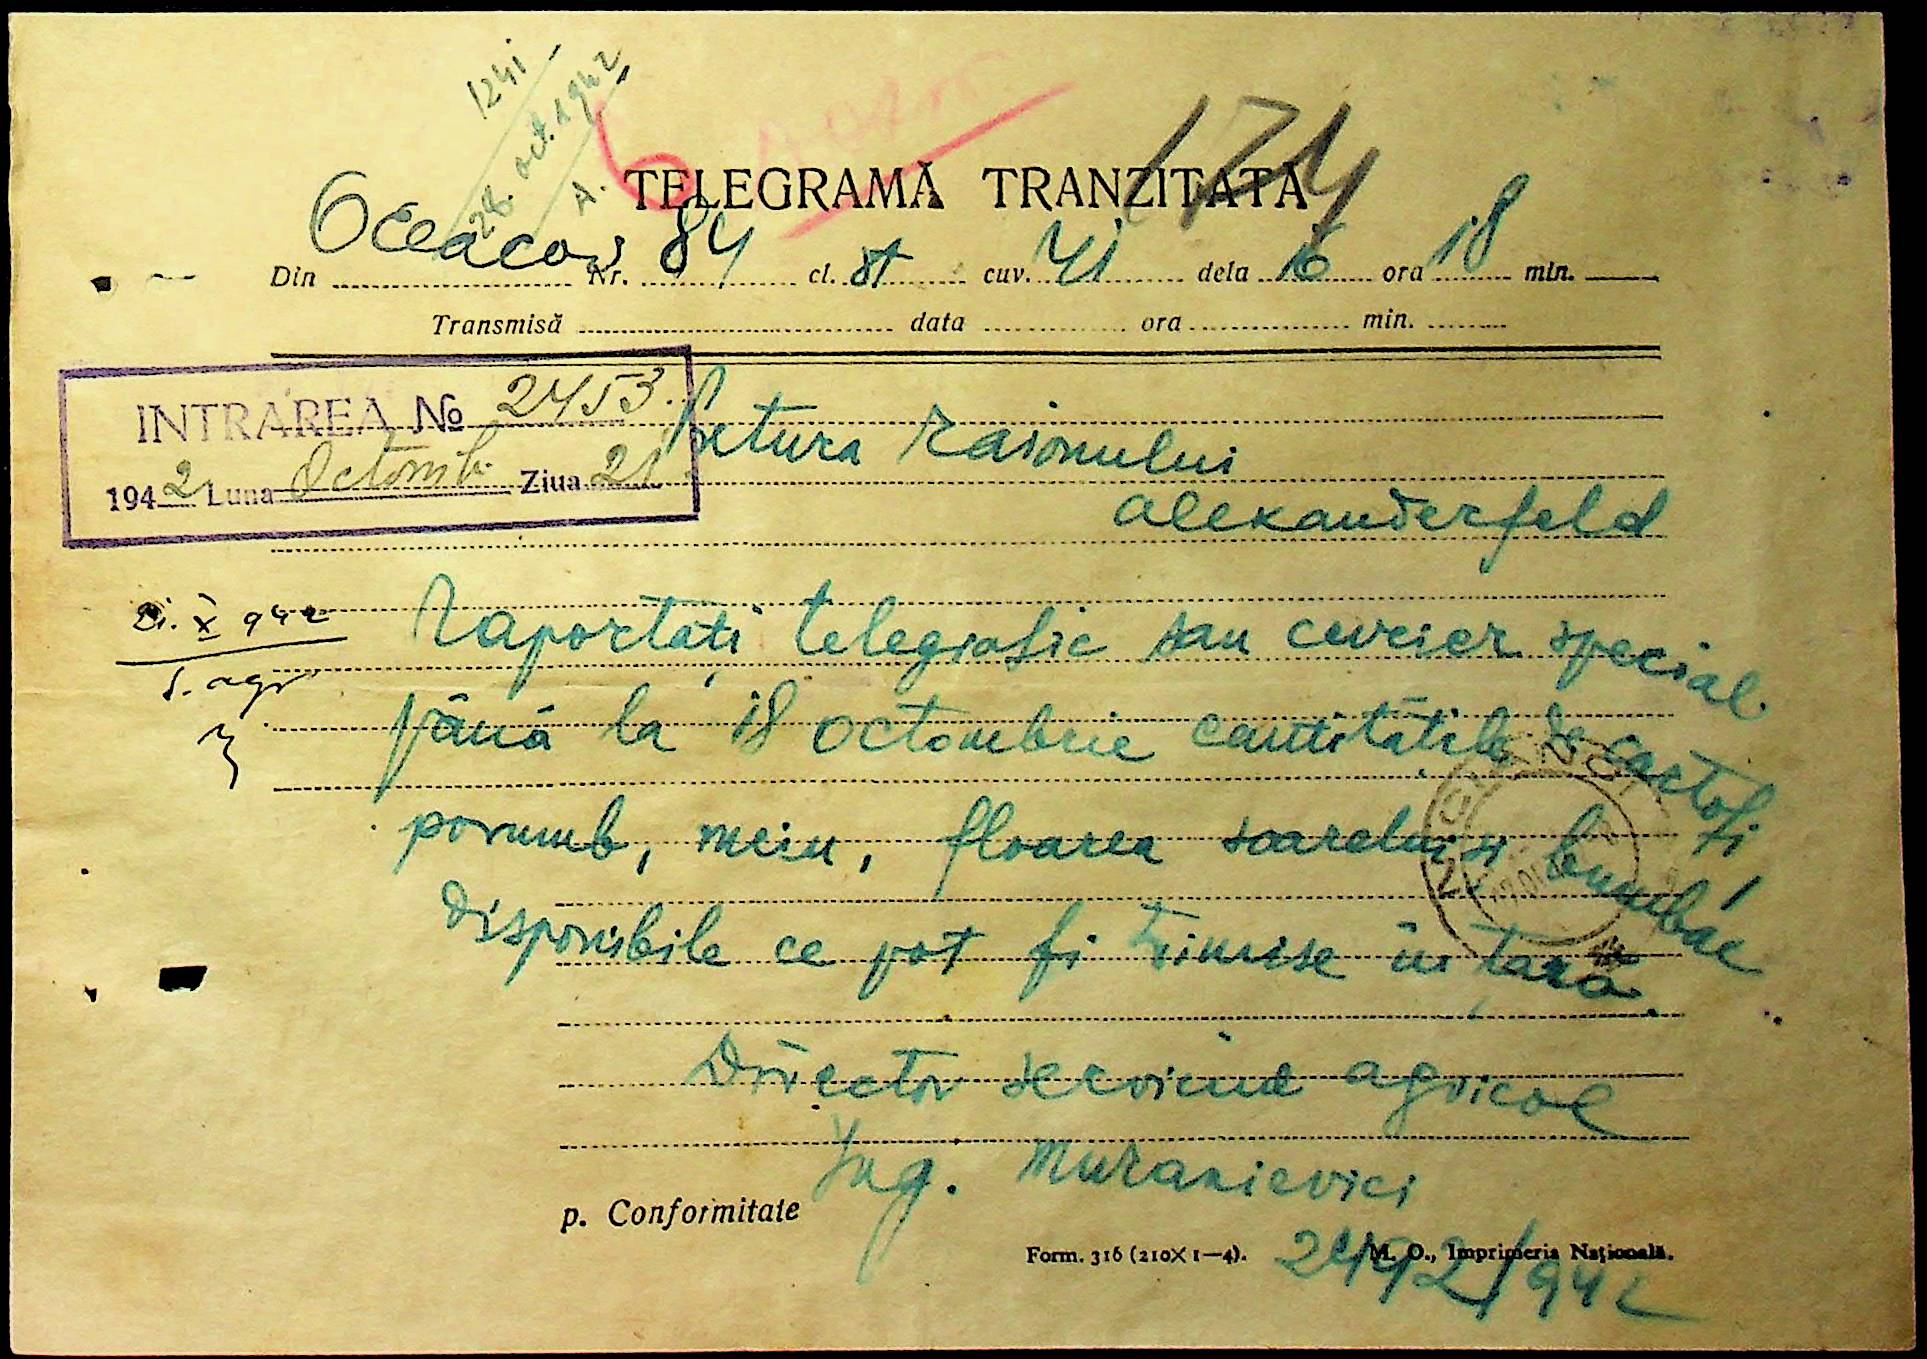 1241
28. oct. 1942
A.
6
174
TELEGRAMĂ TRANZITATĂ
Din Oceacov Nr. 84 cl. st cuv. 41 dela 16 ora 18 min.
Transmisă data ora min.
INTRAREA No 2453
1942 Luna Octomb. Ziua 21
Pretura raionului
alexanderfeld
21. X 942
S. agr
Raportați telegrafic sau curier special
până la 18 octombrie cantitățile de cartofi
porumb, meiu, floarea soarelui și bumbac
disponibile ce pot fi trimise în țară.
Director serviciul agricol
Ing. Muranievici
p. Conformitate
Form. 316 (210X1—4). M. O., Imprimeria Națională.
2492/942